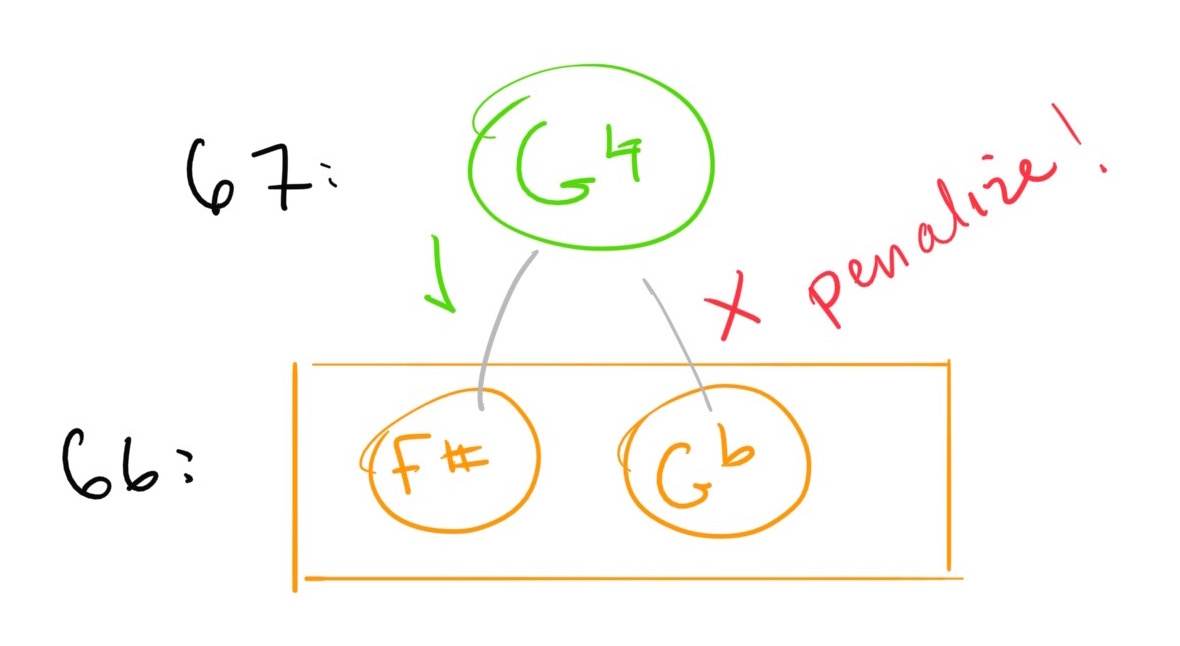 67: G♮
X penalize!
66: F# G♭